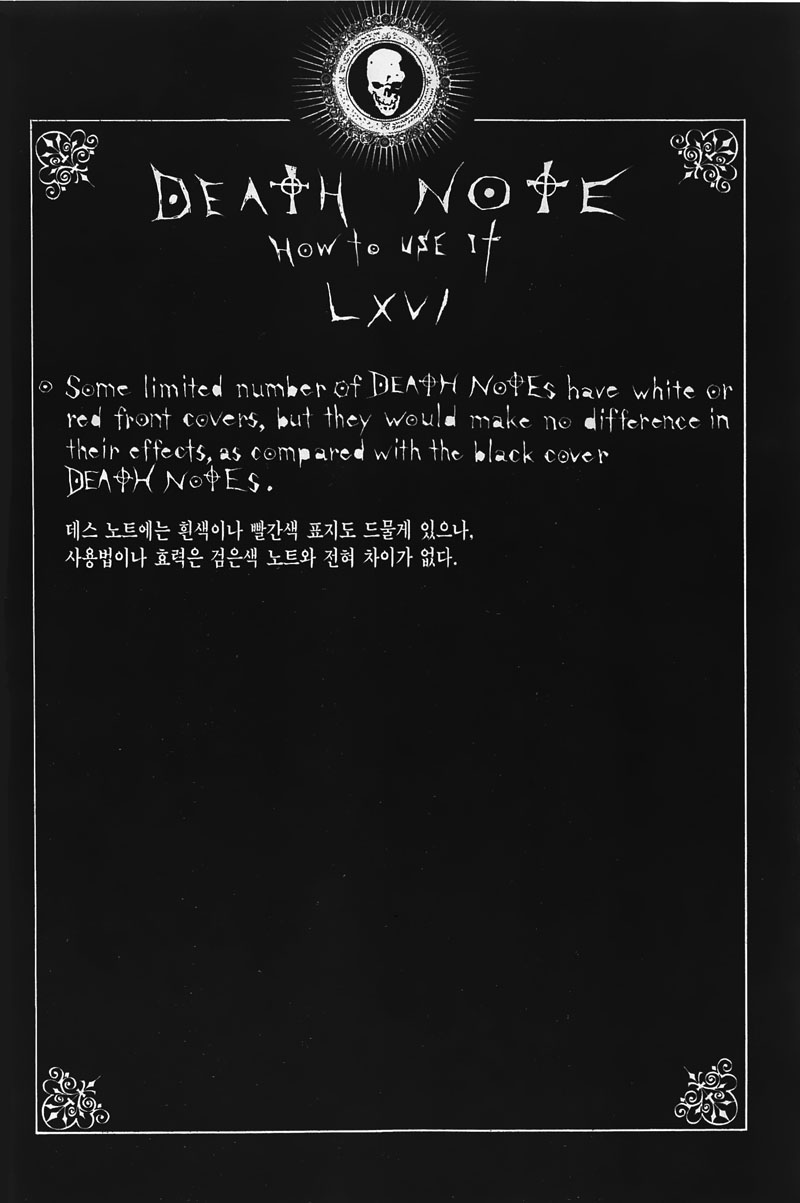 DEATH NOTE
How to use it
LXVI
Some limited number of DEATH NOTEs have white or
red front covers, but they would make no difference in
their effects, as compared with the black cover
DEATH NOTEs.
데스 노트에는 흰색이나 빨간색 표지도 드물게 있으나,
사용법이나 효력은 검은색 노트와 전혀 차이가 없다.